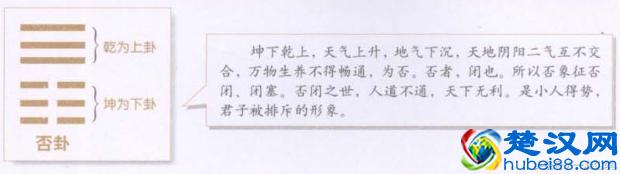 乾为上卦
坤为下卦
否卦
坤下乾上，天气上升，地气下沉，天地阴阳二气互不交
合，万物生养不得畅通，为否。否者，闭也。所以否象征否
闭、闭塞。否闭之世，人道不通，天下无利。是小人得势，
君子被排斥的形象。
楚汉网
hubei88.com